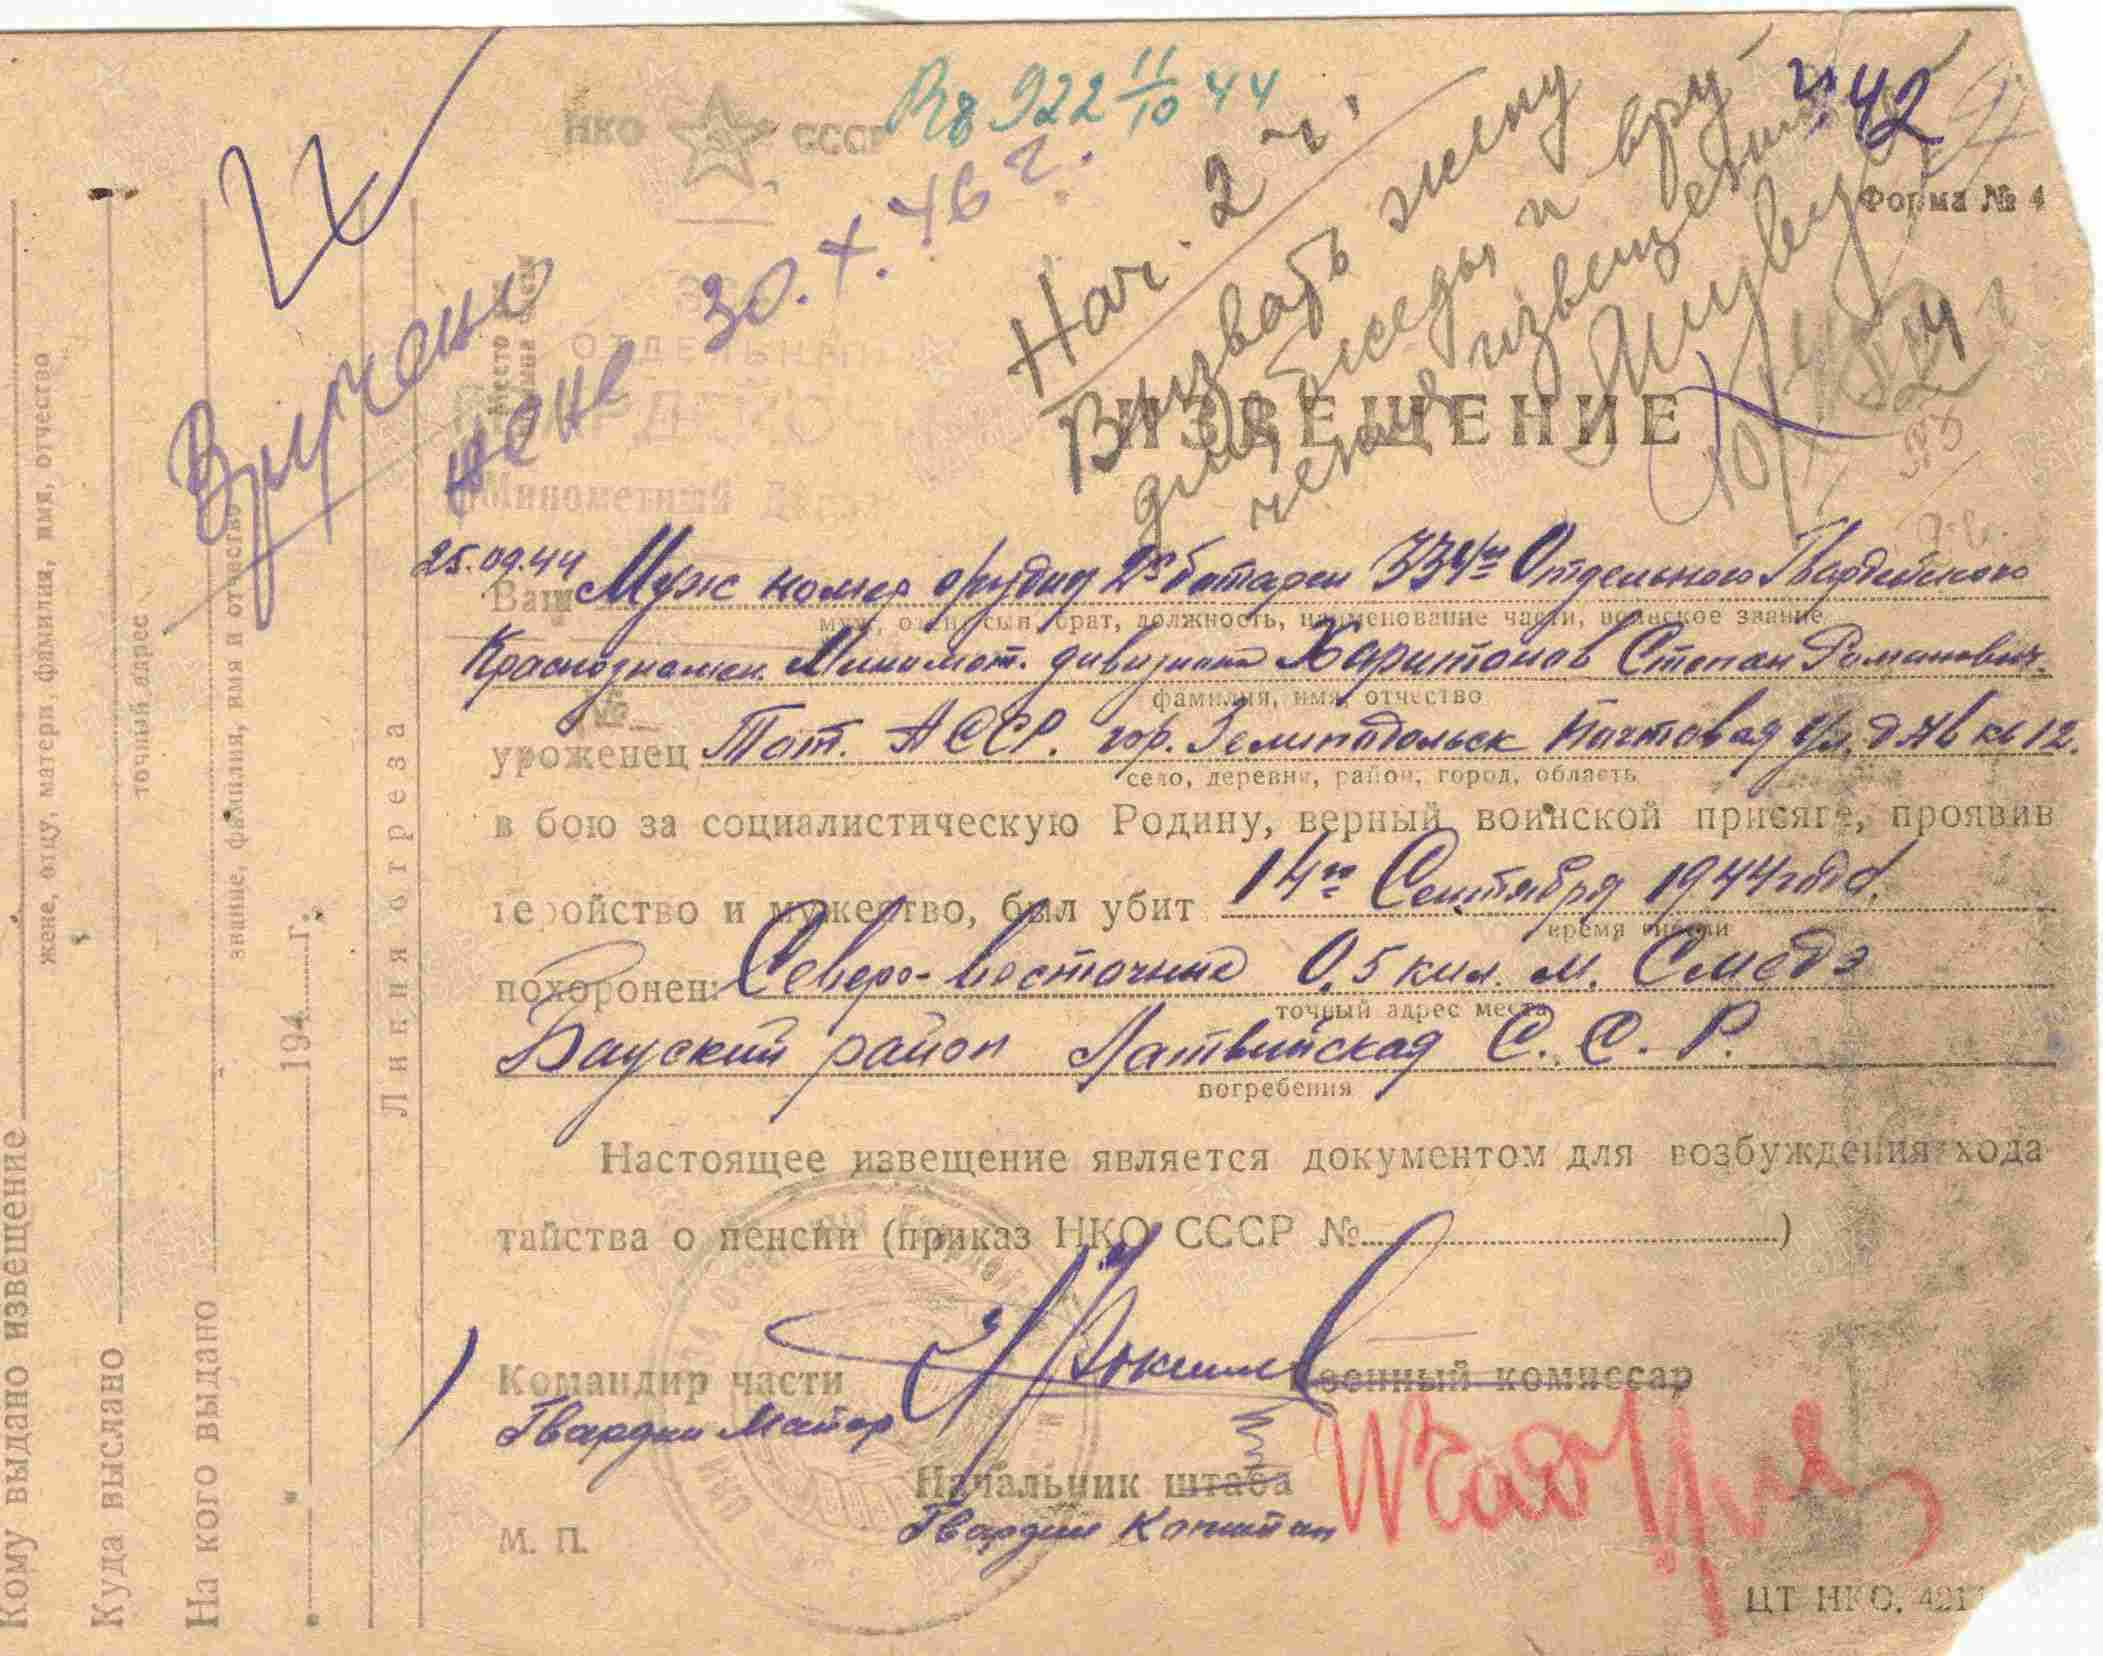 НКО СССР
Вх 922 11/10 44
42
Форма № 4
Нач. 2 ч.
Вызвать жену
для беседы и вру
чения извещения
Вручено
жене 30.X.46 г.
ОТДЕЛЬНЫЙ
Минометный
25.09.44
ИЗВЕЩЕНИЕ
Ваш Муж номер орудия 2й батареи 334го Отдельного Гвардейского
муж, отец, сын, брат, должность, наименование части, воинское звание
Краснознамен. Миномет. дивизиона Харитонов Степан Романович.
фамилия, имя, отчество
уроженец Тат. АССР. гор. Зеленодольск Почтовая ул. д. кв 12.
село, деревня, район, город, область
в бою за социалистическую Родину, верный воинской присяге, проявив
геройство и мужество, был убит 14го Сентября 1944 года.
время гибели
похоронен: Северо-восточние 0,5 кил. м. Смедэ
точный адрес места
Бауский район Латвийская С. С. Р.
погребения
Настоящее извещение является документом для возбуждения хода
тайства о пенсии (приказ НКО СССР № )
Командир части
Военный комиссар
Гвардии Майор
Начальник штаба
Гвардии Капитан
М. П.
ЦТ НКО. 421
Линия отреза
Кому выдано извещение
жене, отцу, матери, фамилия, имя, отчество
Куда выслано
точный адрес
На кого выдано
звание, фамилия, имя и отчество
194 г.